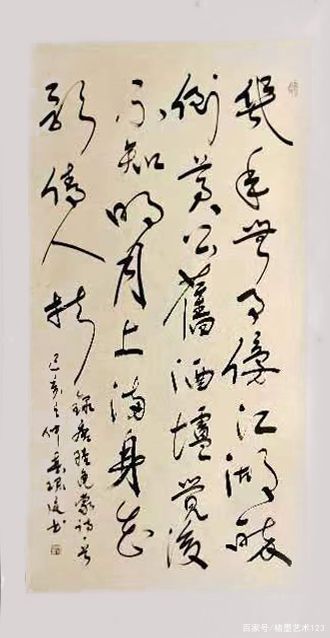 幾年無事傍江湖醉
倒黃公舊酒壚覺後
不知明月上滿身花
影倩人扶
錄唐陸龜蒙詩一首
己亥之仲春书
百家号/楮墨艺术123